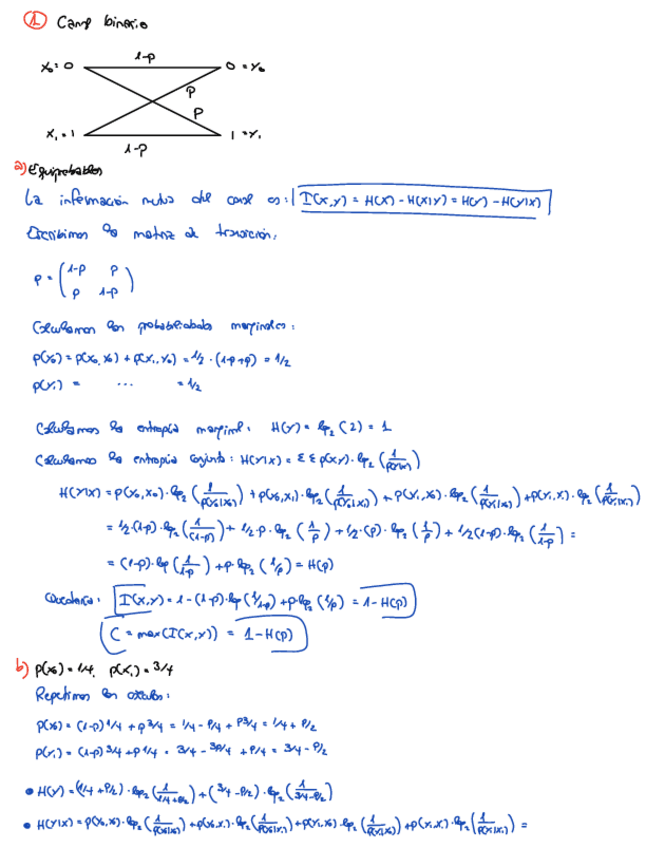 ① Canal binario
x₀ = 0 1-p 0 = y₀
p
p
x₁ = 1 1 = y₁
1-p
a) Equiprobables
La información mutua del canal es: I(x,y) = H(X) - H(X|Y) = H(Y) - H(Y|X)
Escribimos la matriz de transición,
P = ( 1-p p
p 1-p )
Calculamos las probabilidades marginales:
p(y₀) = p(x₀,y₀) + p(x₁,y₀) = 1/2 · (1-p+p) = 1/2
p(y₁) = ... = 1/2
Calculamos la entropía marginal: H(Y) = log₂(2) = 1
Calculamos la entropía conjunta: H(Y|X) = Σ Σ p(x,y) · log₂(1/p(y|x))
H(Y|X) = p(y₀,x₀) · log₂(1/p(y₀|x₀)) + p(y₀,x₁) · log₂(1/p(y₀|x₁)) + p(y₁,x₀) · log₂(1/p(y₁|x₀)) + p(y₁,x₁) · log₂(1/p(y₁|x₁))
= 1/2 · (1-p) · log₂(1/(1-p)) + 1/2 · p · log₂(1/p) + 1/2 · (p) · log₂(1/p) + 1/2 (1-p) · log₂(1/1-p) =
= (1-p) · log(1/1-p) + p · log₂(1/p) = H(p)
I(x,y) = 1 - (1-p) · log(1/1-p) + p · log₂(1/p) = 1 - H(p)
C = max(I(x,y)) = 1 - H(p)
b) p(x₀) = 1/4, p(x₁) = 3/4
Repetimos los cálculos:
p(y₀) = (1-p) 1/4 + p 3/4 = 1/4 - p/4 + p3/4 = 1/4 + p/2
p(y₁) = (1-p) 3/4 + p 1/4 = 3/4 - 3p/4 + p/4 = 3/4 - p/2
• H(Y) = (1/4 + p/2) · log₂(1/(1/4+p/2)) + (3/4 - p/2) · log₂(1/(3/4-p/2))
• H(Y|X) = p(y₀,x₀) · log₂(1/p(y₀|x₀)) + p(y₀,x₁) · log₂(1/p(y₀|x₁)) + p(y₁,x₀) · log₂(1/p(y₁|x₀)) + p(y₁,x₁) · log₂(1/p(y₁|x₁)) =